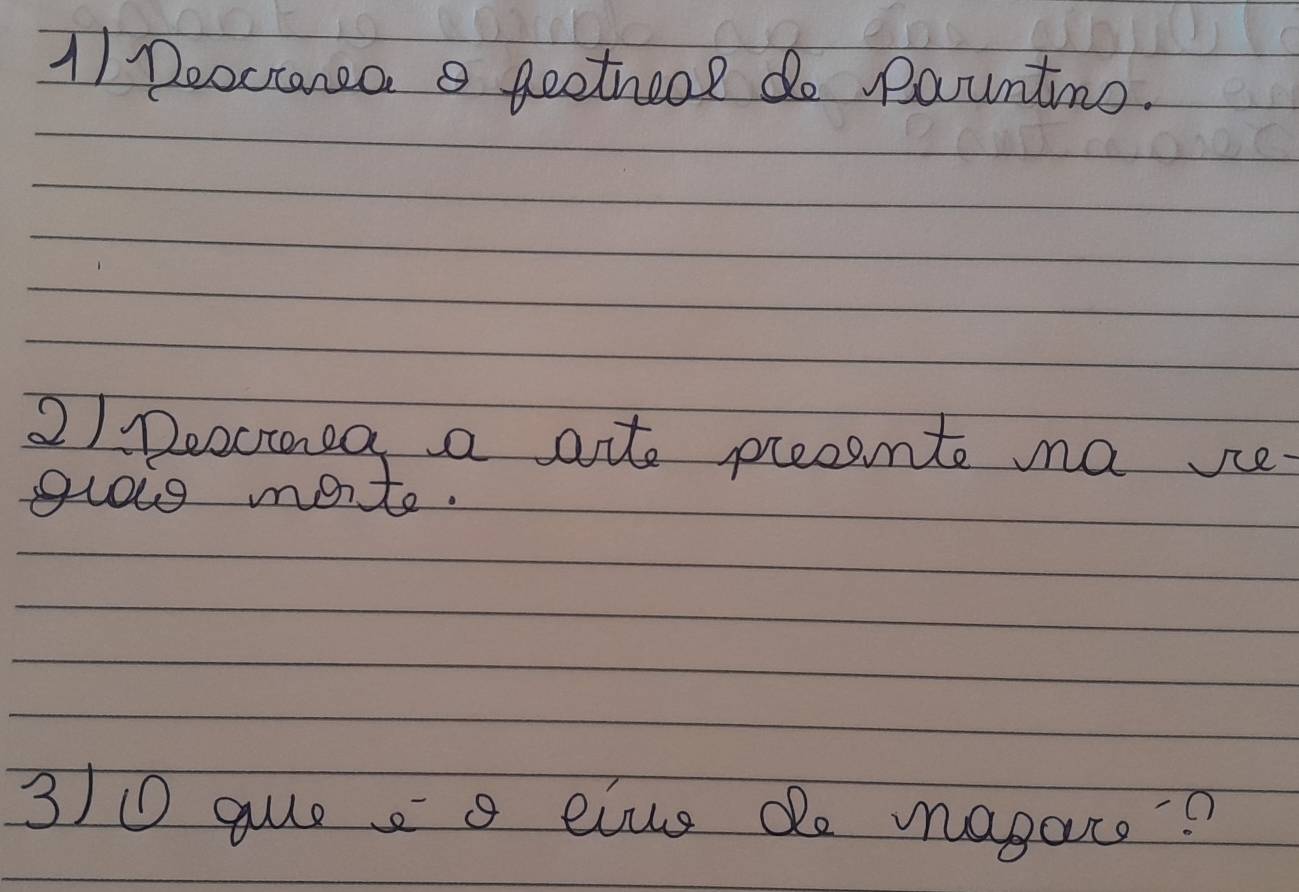 1) Descreva o festival de Parintins.
2) Descreva a arte presente na re-
gião norte.
3) O que é o círio de nazaré?